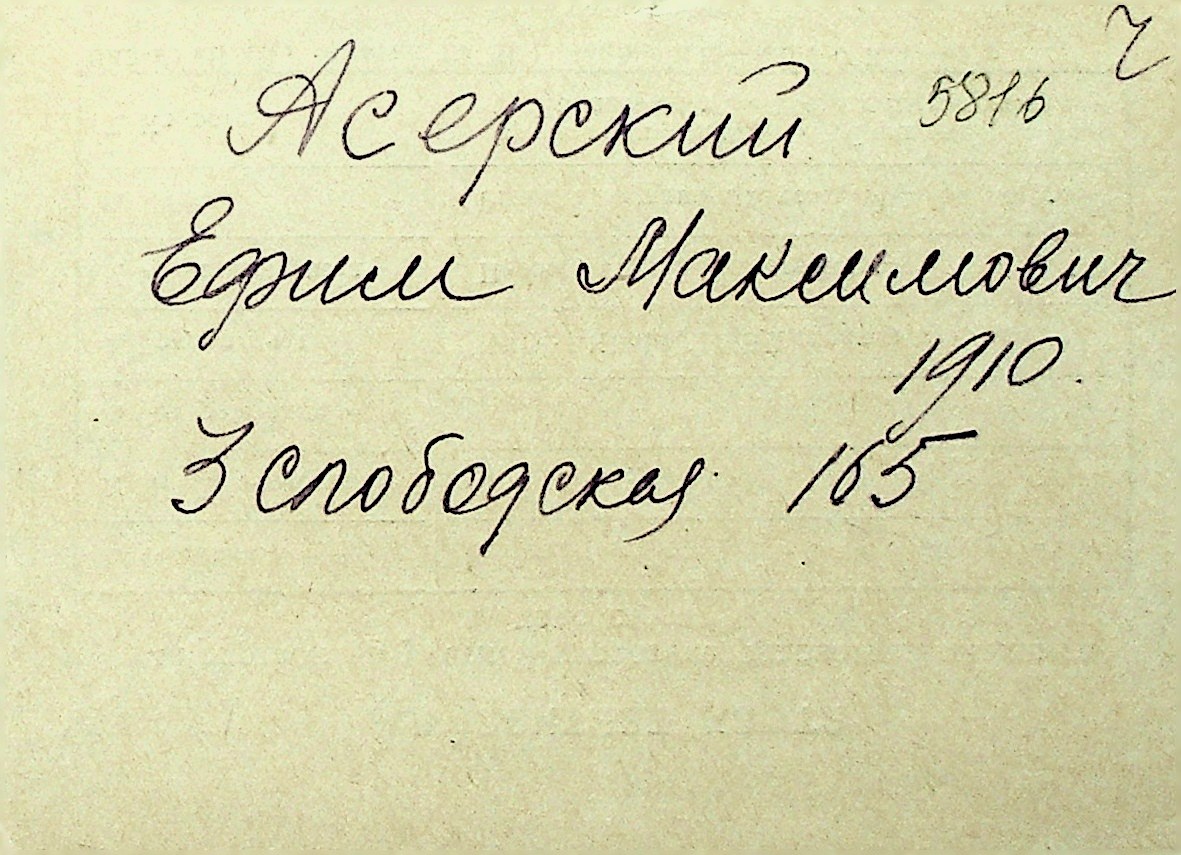 Асерский 5816
Ефим Максимович
1910.
3 слободская 165